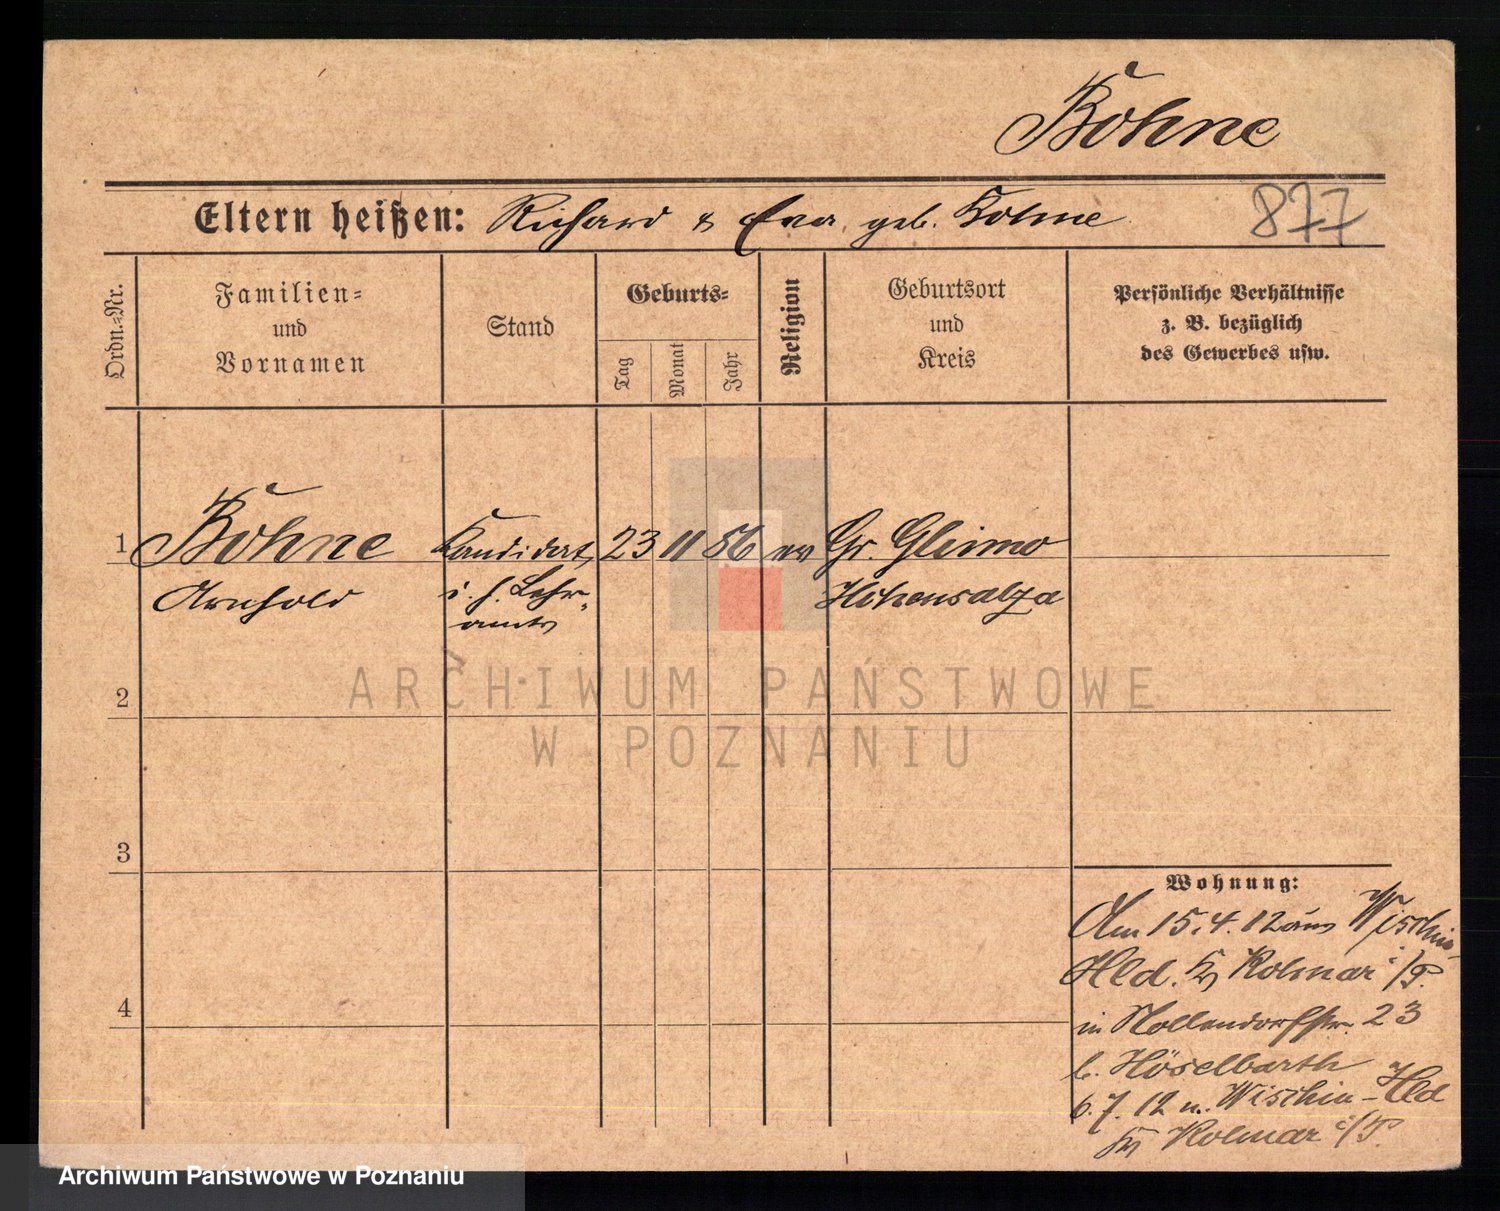 Böhne
Eltern heißen: Richard & Eva geb. Böhme
877
Ordn.-Nr.
Familien-
und
Vornamen
Stand
Geburts-
Tag
Monat
Jahr
Religion
Geburtsort
und
Kreis
Persönliche Verhältnisse
z. B. bezüglich
des Gewerbes usw.
1 Böhne Kandidat 23 11 86 ev Gr. Glinno
Arnhold i. h. Lehr- Hohensalza
amts
ARCHIWUM PAŃSTWOWE
W POZNANIU
2
3
4
Wohnung:
Am 15.4.12 aus Wischin-
Hld. Kr Kolmar i/P.
in Nollendorfstr. 23
b. Höselbarth
6.7.12 n. Wischin-Hld
Kr Kolmar i/P.
Archiwum Państwowe w Poznaniu